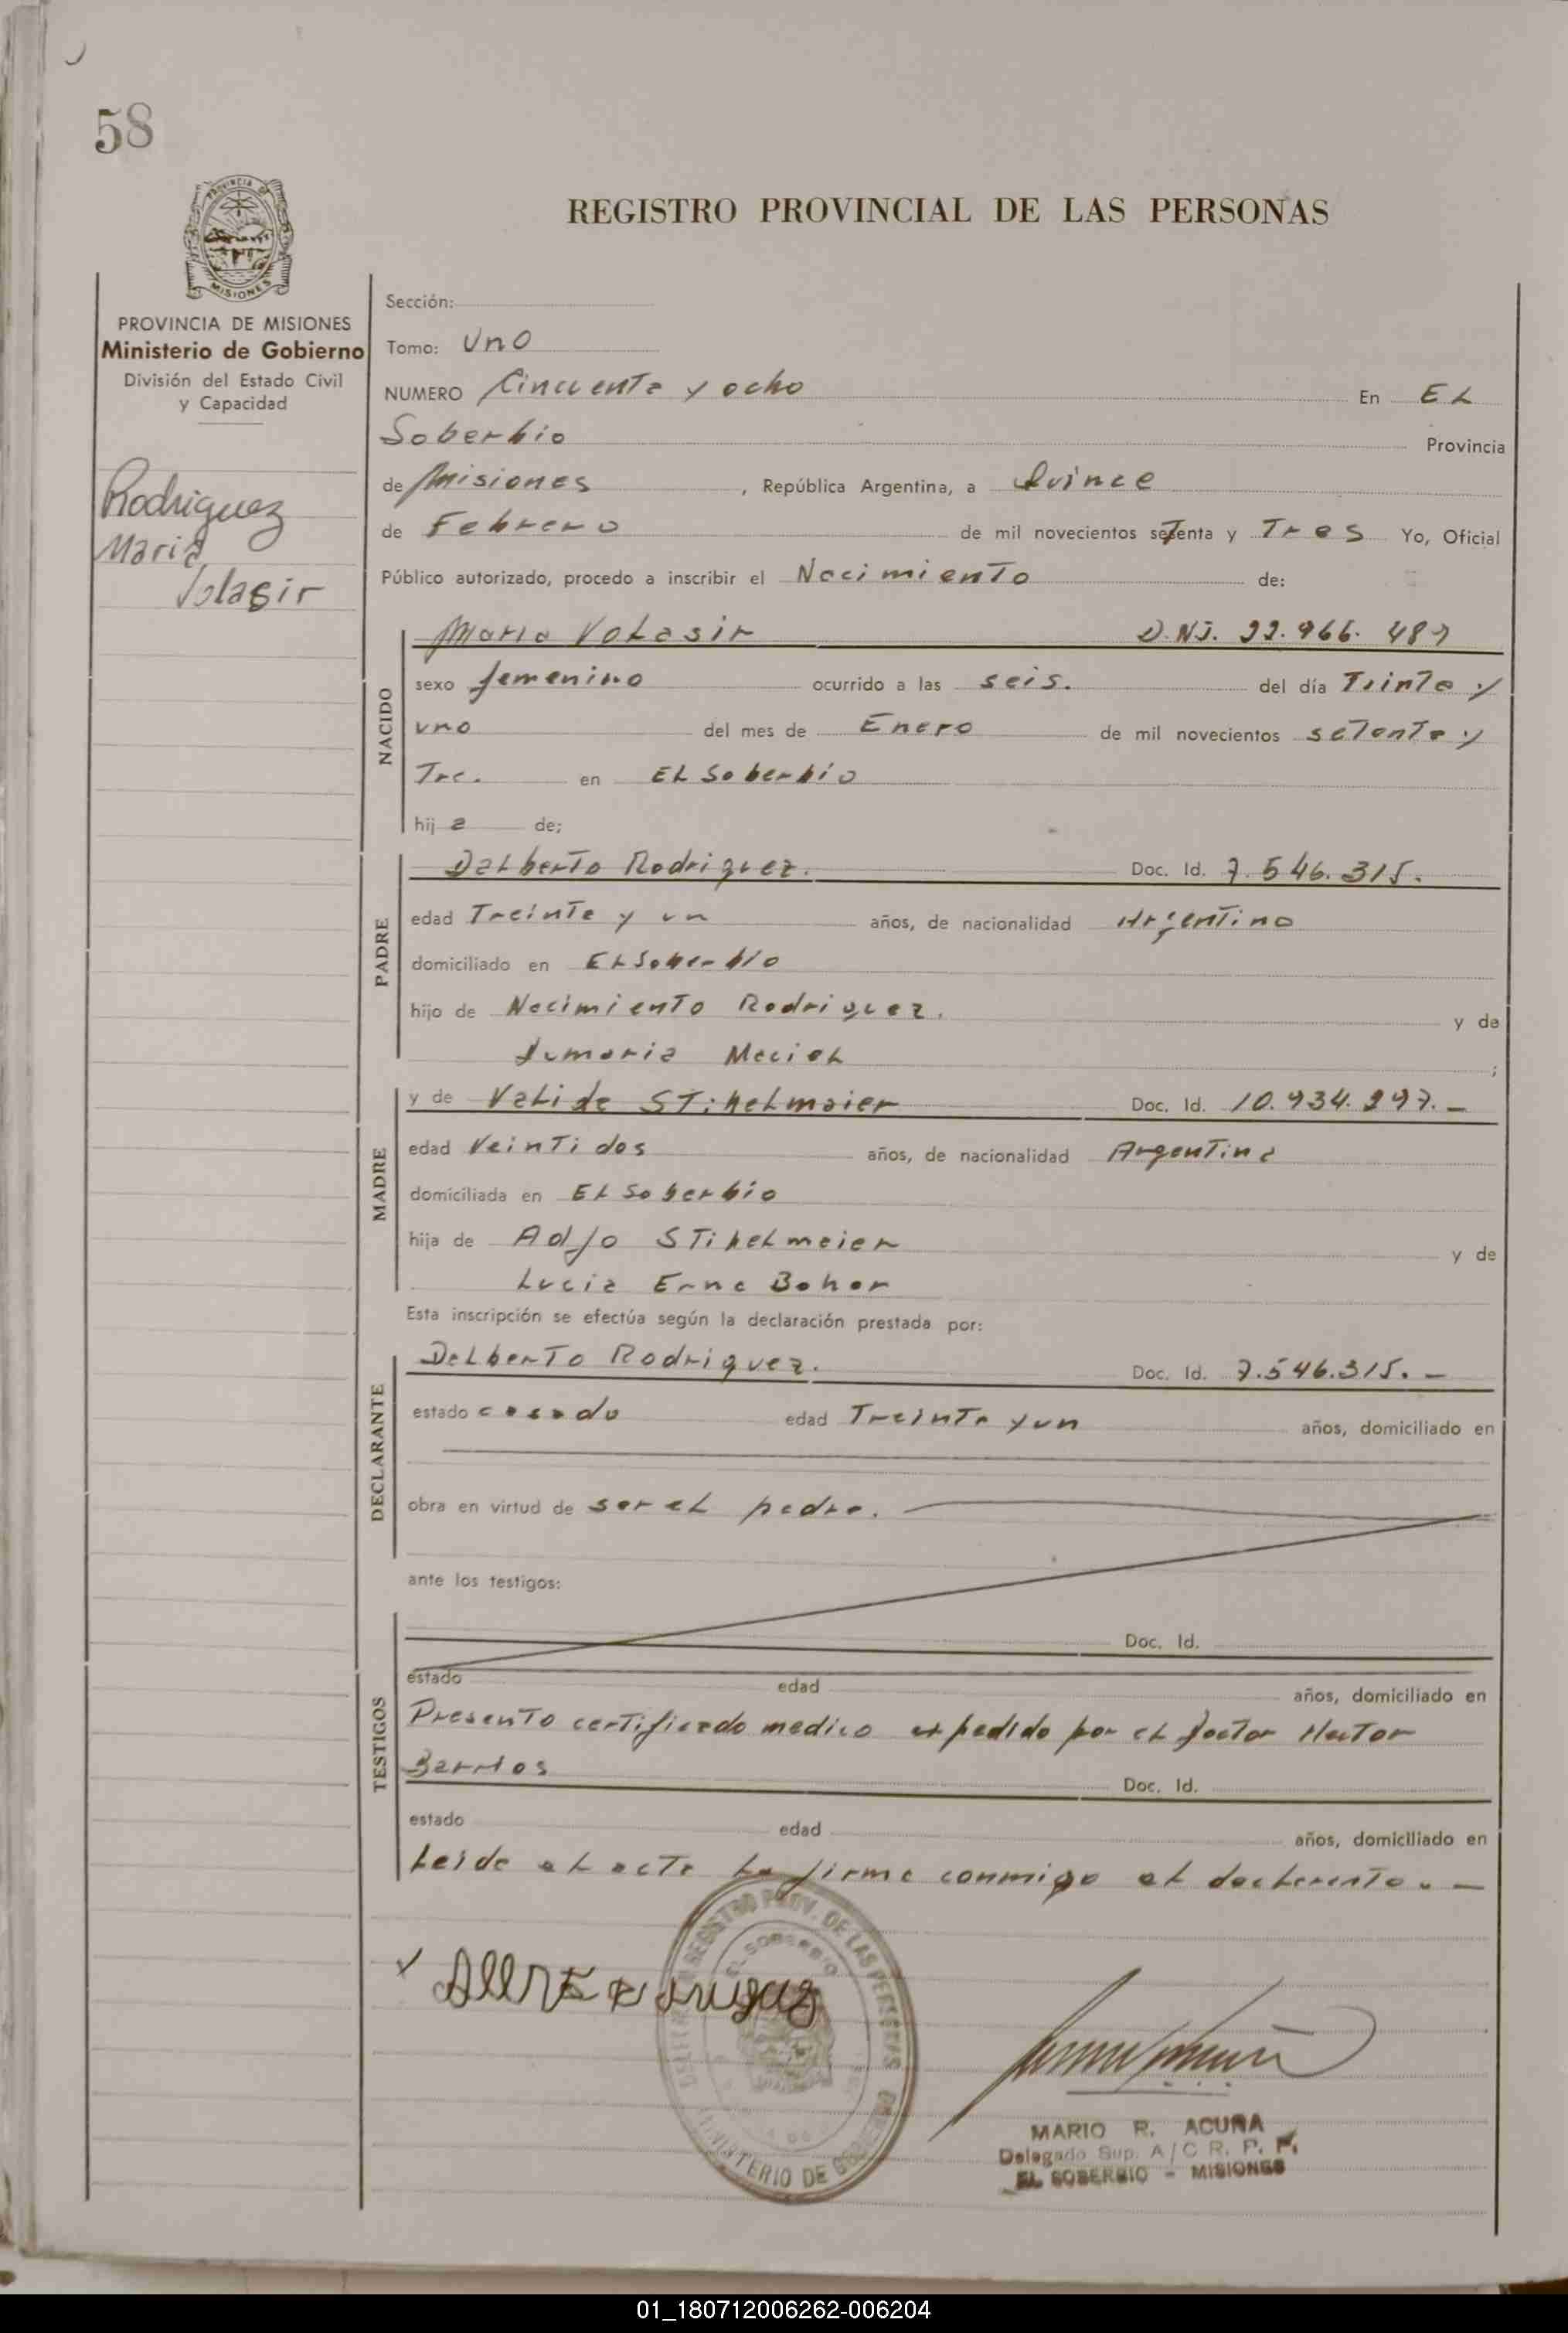 58
PROVINCIA DE
MISIONES
REGISTRO PROVINCIAL DE LAS PERSONAS
PROVINCIA DE MISIONES
Ministerio de Gobierno
División del Estado Civil
y Capacidad
Rodriguez
Maria
Volasir
Sección:
Tomo: Uno
NUMERO Cincuenta y ocho En EL
Soberbio Provincia
de Misiones, República Argentina, a Quince
de Febrero de mil novecientos setenta y Tres Yo, Oficial
Público autorizado, procedo a inscribir el Nacimiento de:
NACIDO
Maria Volasir D.NI. 22.966.487
sexo femenino ocurrido a las seis. del día Treinta y
uno del mes de Enero de mil novecientos setenta y
Tre. en EL Soberbio
hija de;
PADRE
Dalberto Rodriguez. Doc. Id. 7.546.315.
edad Treinta y un años, de nacionalidad Argentino
domiciliado en EL Soberbio
hijo de Nacimiento Rodriguez. y de
Maciel ;
MADRE
y de Valida Stihelmaier Doc. Id. 10.934.297.-
edad Veinti dos años, de nacionalidad Argentina
domiciliada en EL Soberbio
hija de Adjo Stihelmeier y de
Lucia Erna Boher
Esta inscripción se efectúa según la declaración prestada por:
DECLARANTE
Delberto Rodriguez. Doc. Id. 7.546.315.-
estado casado edad Treinta y un años, domiciliado en
obra en virtud de ser el padre.
ante los testigos:
TESTIGOS
Doc. Id.
estado edad años, domiciliado en
Presento certificado medico expedido por el Doctor Hector
Barrios Doc. Id.
estado edad años, domiciliado en
Leida el acta la firma conmigo el declarante.-
REGISTRO PROV. DE LAS PERSONAS
EL SOBERBIO
MINISTERIO DE GOBIERNO
MARIO R. ACUÑA
Delegado Sup. A/C R. P. P.
EL SOBERBIO - MISIONES
01_180712006262-006204